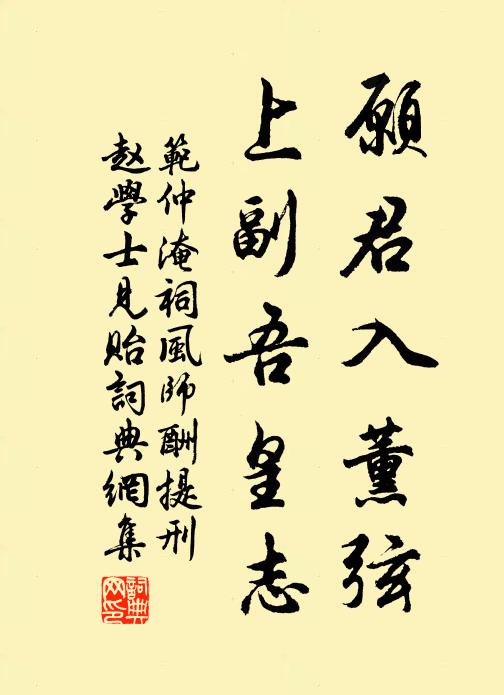 願君入薰弦
上副吾皇志
範仲淹祠風師酬提刑
赵學士見貽詞典網集